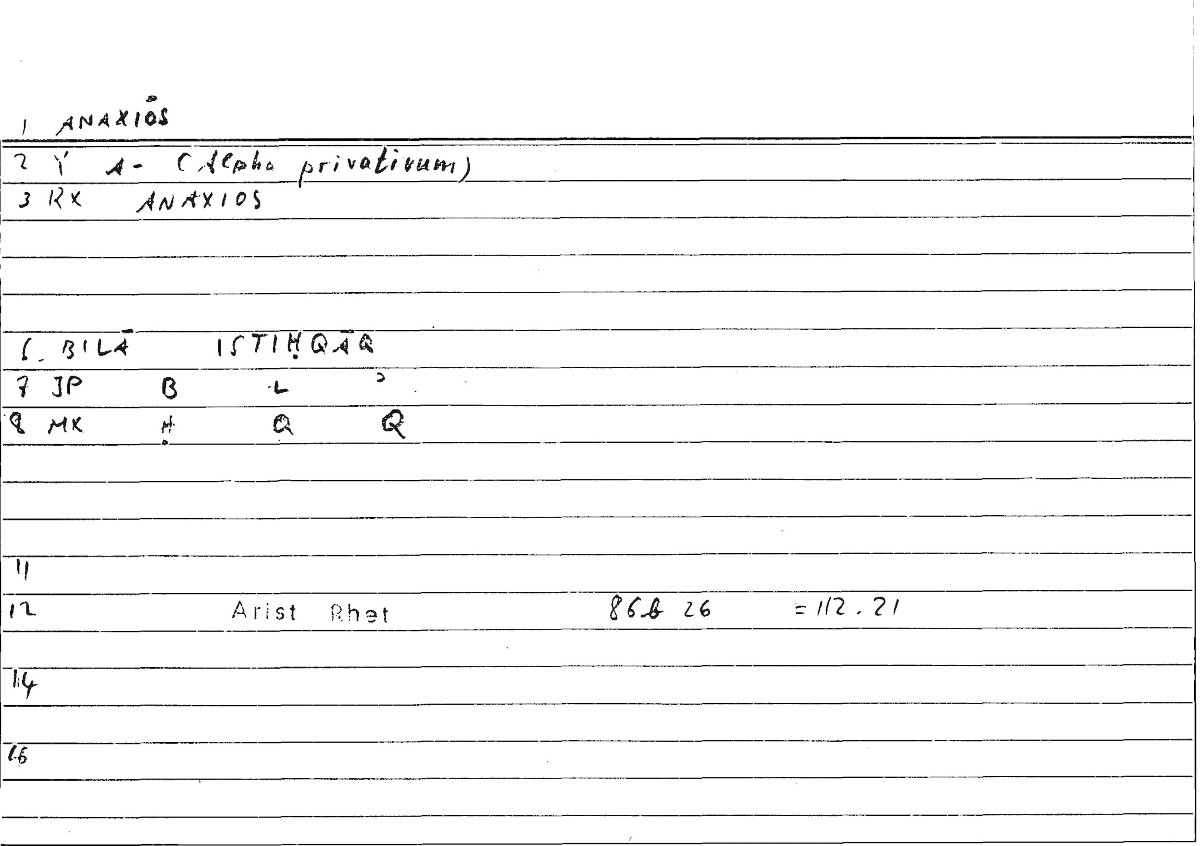 1 ANAXIŌS
2 Y A- (Alpha privativum)
3 RX ANAXIOS
6. BILĀ ISTIḤQĀQ
7 JP B L ʾ
8 MK Ḥ Q Q
11
12 Arist Rhet 86b 26 =112.21
14
16